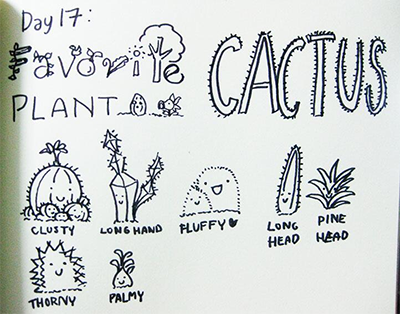 Day 17:
Favorite
PLANT
CACTUS
CLUSTY
LONG HAND
FLUFFY
LONG HEAD
PINE HEAD
THORNY
PALMY